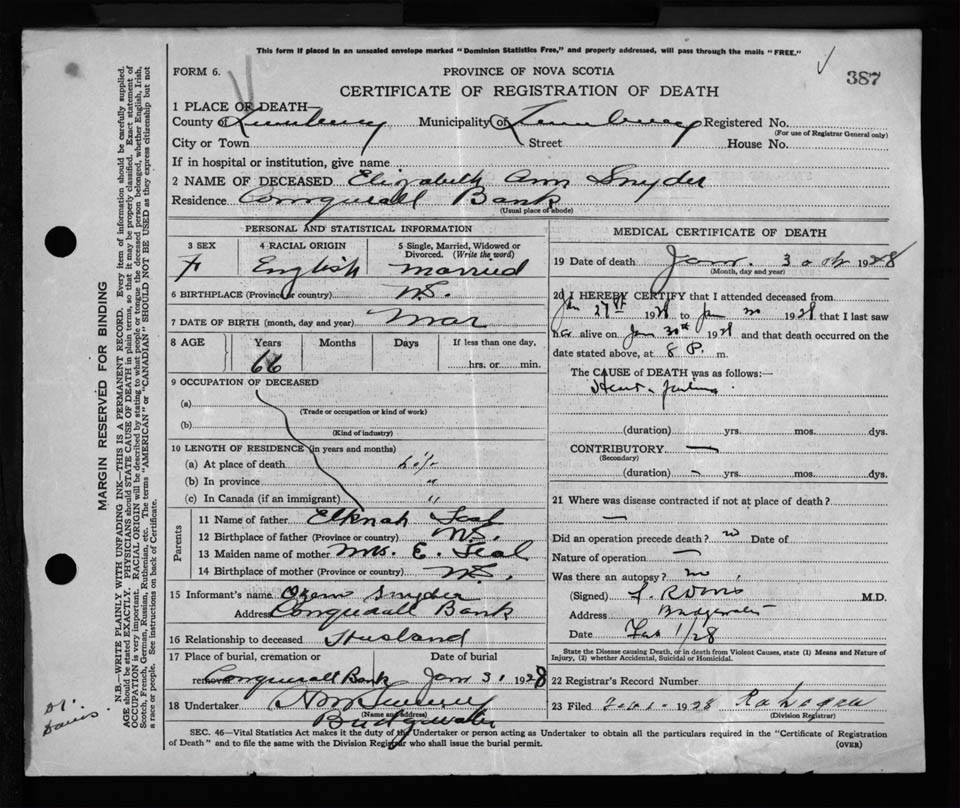 This form if placed in an unsealed envelope marked "Dominion Statistics Free," and properly addressed, will pass through the mails "FREE."
FORM 6.
PROVINCE OF NOVA SCOTIA
387
CERTIFICATE OF REGISTRATION OF DEATH
1 PLACE OF DEATH
County of Lunenburg Municipality of Lunenburg Registered No.
(For use of Registrar General only)
City or Town Street House No.
If in hospital or institution, give name
2 NAME OF DECEASED Elizabeth Ann Snyder
Residence Conquerall Bank
(Usual place of abode)
PERSONAL AND STATISTICAL INFORMATION
3 SEX 4 RACIAL ORIGIN 5 Single, Married, Widowed or Divorced. (Write the word)
F English married
6 BIRTHPLACE (Province or country) N.S.
7 DATE OF BIRTH (month, day and year) Mar
8 AGE Years Months Days If less than one day,
66 hrs. or min.
9 OCCUPATION OF DECEASED
(a)
(Trade or occupation or kind of work)
(b)
(Kind of industry)
10 LENGTH OF RESIDENCE (in years and months)
(a) At place of death life
(b) In province "
(c) In Canada (if an immigrant) "
Parents
11 Name of father Elknah Teal
12 Birthplace of father (Province or country) N.S.
13 Maiden name of mother Mrs. E. Teal
14 Birthplace of mother (Province or country) N.S.
15 Informant's name Snyder
Address Conquerall Bank
16 Relationship to deceased Husband
17 Place of burial, cremation or removal Date of burial
Conquerall Bank Jan 31 1928
18 Undertaker
(Name and address)
Bridgewater
MEDICAL CERTIFICATE OF DEATH
19 Date of death Jan. 30th 1928
(Month, day and year)
20 I HEREBY CERTIFY that I attended deceased from
Jan 27th 1928 to Jan 30 1928 that I last saw
her alive on Jan 30th 1928 and that death occurred on the
date stated above, at 8 P. m.
The CAUSE of DEATH was as follows:—
Heart failure
(duration) yrs. mos. dys.
CONTRIBUTORY —
(Secondary)
(duration) — yrs. mos. dys.
21 Where was disease contracted if not at place of death?
—
Did an operation precede death? no Date of
Nature of operation —
Was there an autopsy? no
(Signed) M.D.
Address Bridgewater
Date Feb 1/28
State the Disease causing Death, or in death from Violent Causes, state (1) Means and Nature of
Injury, (2) whether Accidental, Suicidal or Homicidal.
22 Registrar's Record Number
23 Filed Feb 1 1928
(Division Registrar)
SEC. 46—Vital Statistics Act makes it the duty of the Undertaker or person acting as Undertaker to obtain all the particulars required in the "Certificate of Registration
of Death" and to file the same with the Division Registrar who shall issue the burial permit.
(OVER)
MARGIN RESERVED FOR BINDING
N.B.—WRITE PLAINLY WITH UNFADING INK—THIS IS A PERMANENT RECORD. Every item of information should be carefully supplied.
AGE should be stated EXACTLY. PHYSICIANS should STATE CAUSE OF DEATH in plain terms, so that it may be properly classified. Exact statement of
OCCUPATION is very important. RACIAL ORIGIN will be described by stating to what people or tongue the deceased person belonged, whether English, Irish,
Scotch, French, German, Russian, Ruthenian, etc. The terms "AMERICAN" or "CANADIAN" SHOULD NOT BE USED as they express citizenship but not
a race or people. See instructions on back of Certificate.